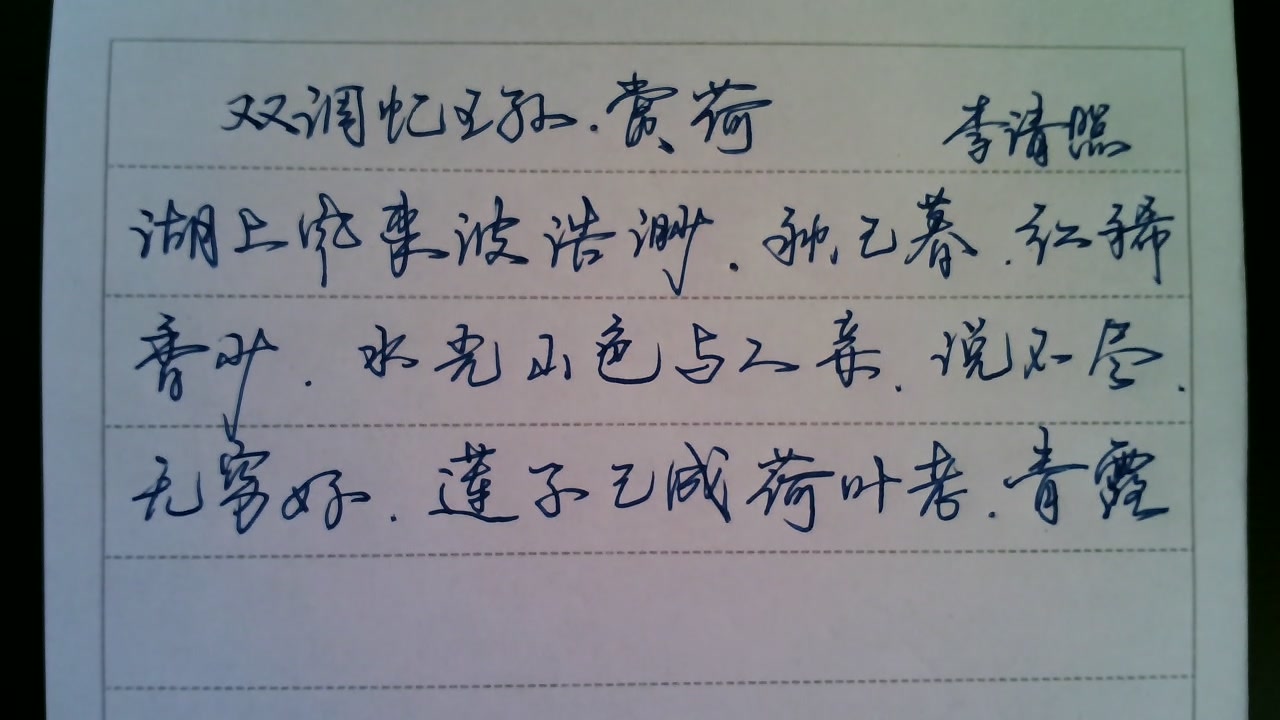 双调忆王孙.赏荷 李清照
湖上风来波浩渺.秋已暮.红稀
香少.水光山色与人亲.说不尽.
无穷好.莲子已成荷叶老.青露